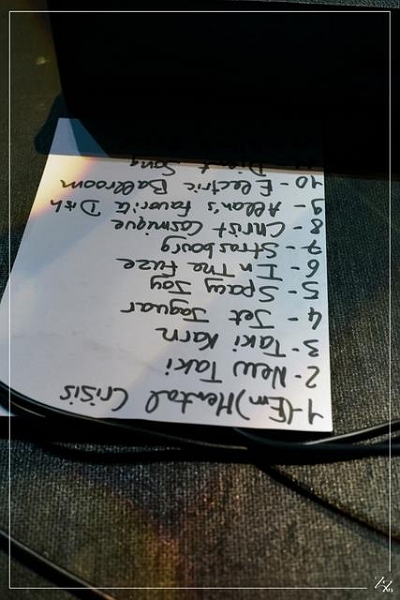 1-(Em)Mental Crisis
2-New Taki
3-Taki Karn
4- Jet Jaguar
5 - Spacy Joy
6 - In The Fuze
7 - Strasbourg
8 - Christ Cosmique
9 - Allan's Favorite Dish
10 - Electric Ballroom
Song